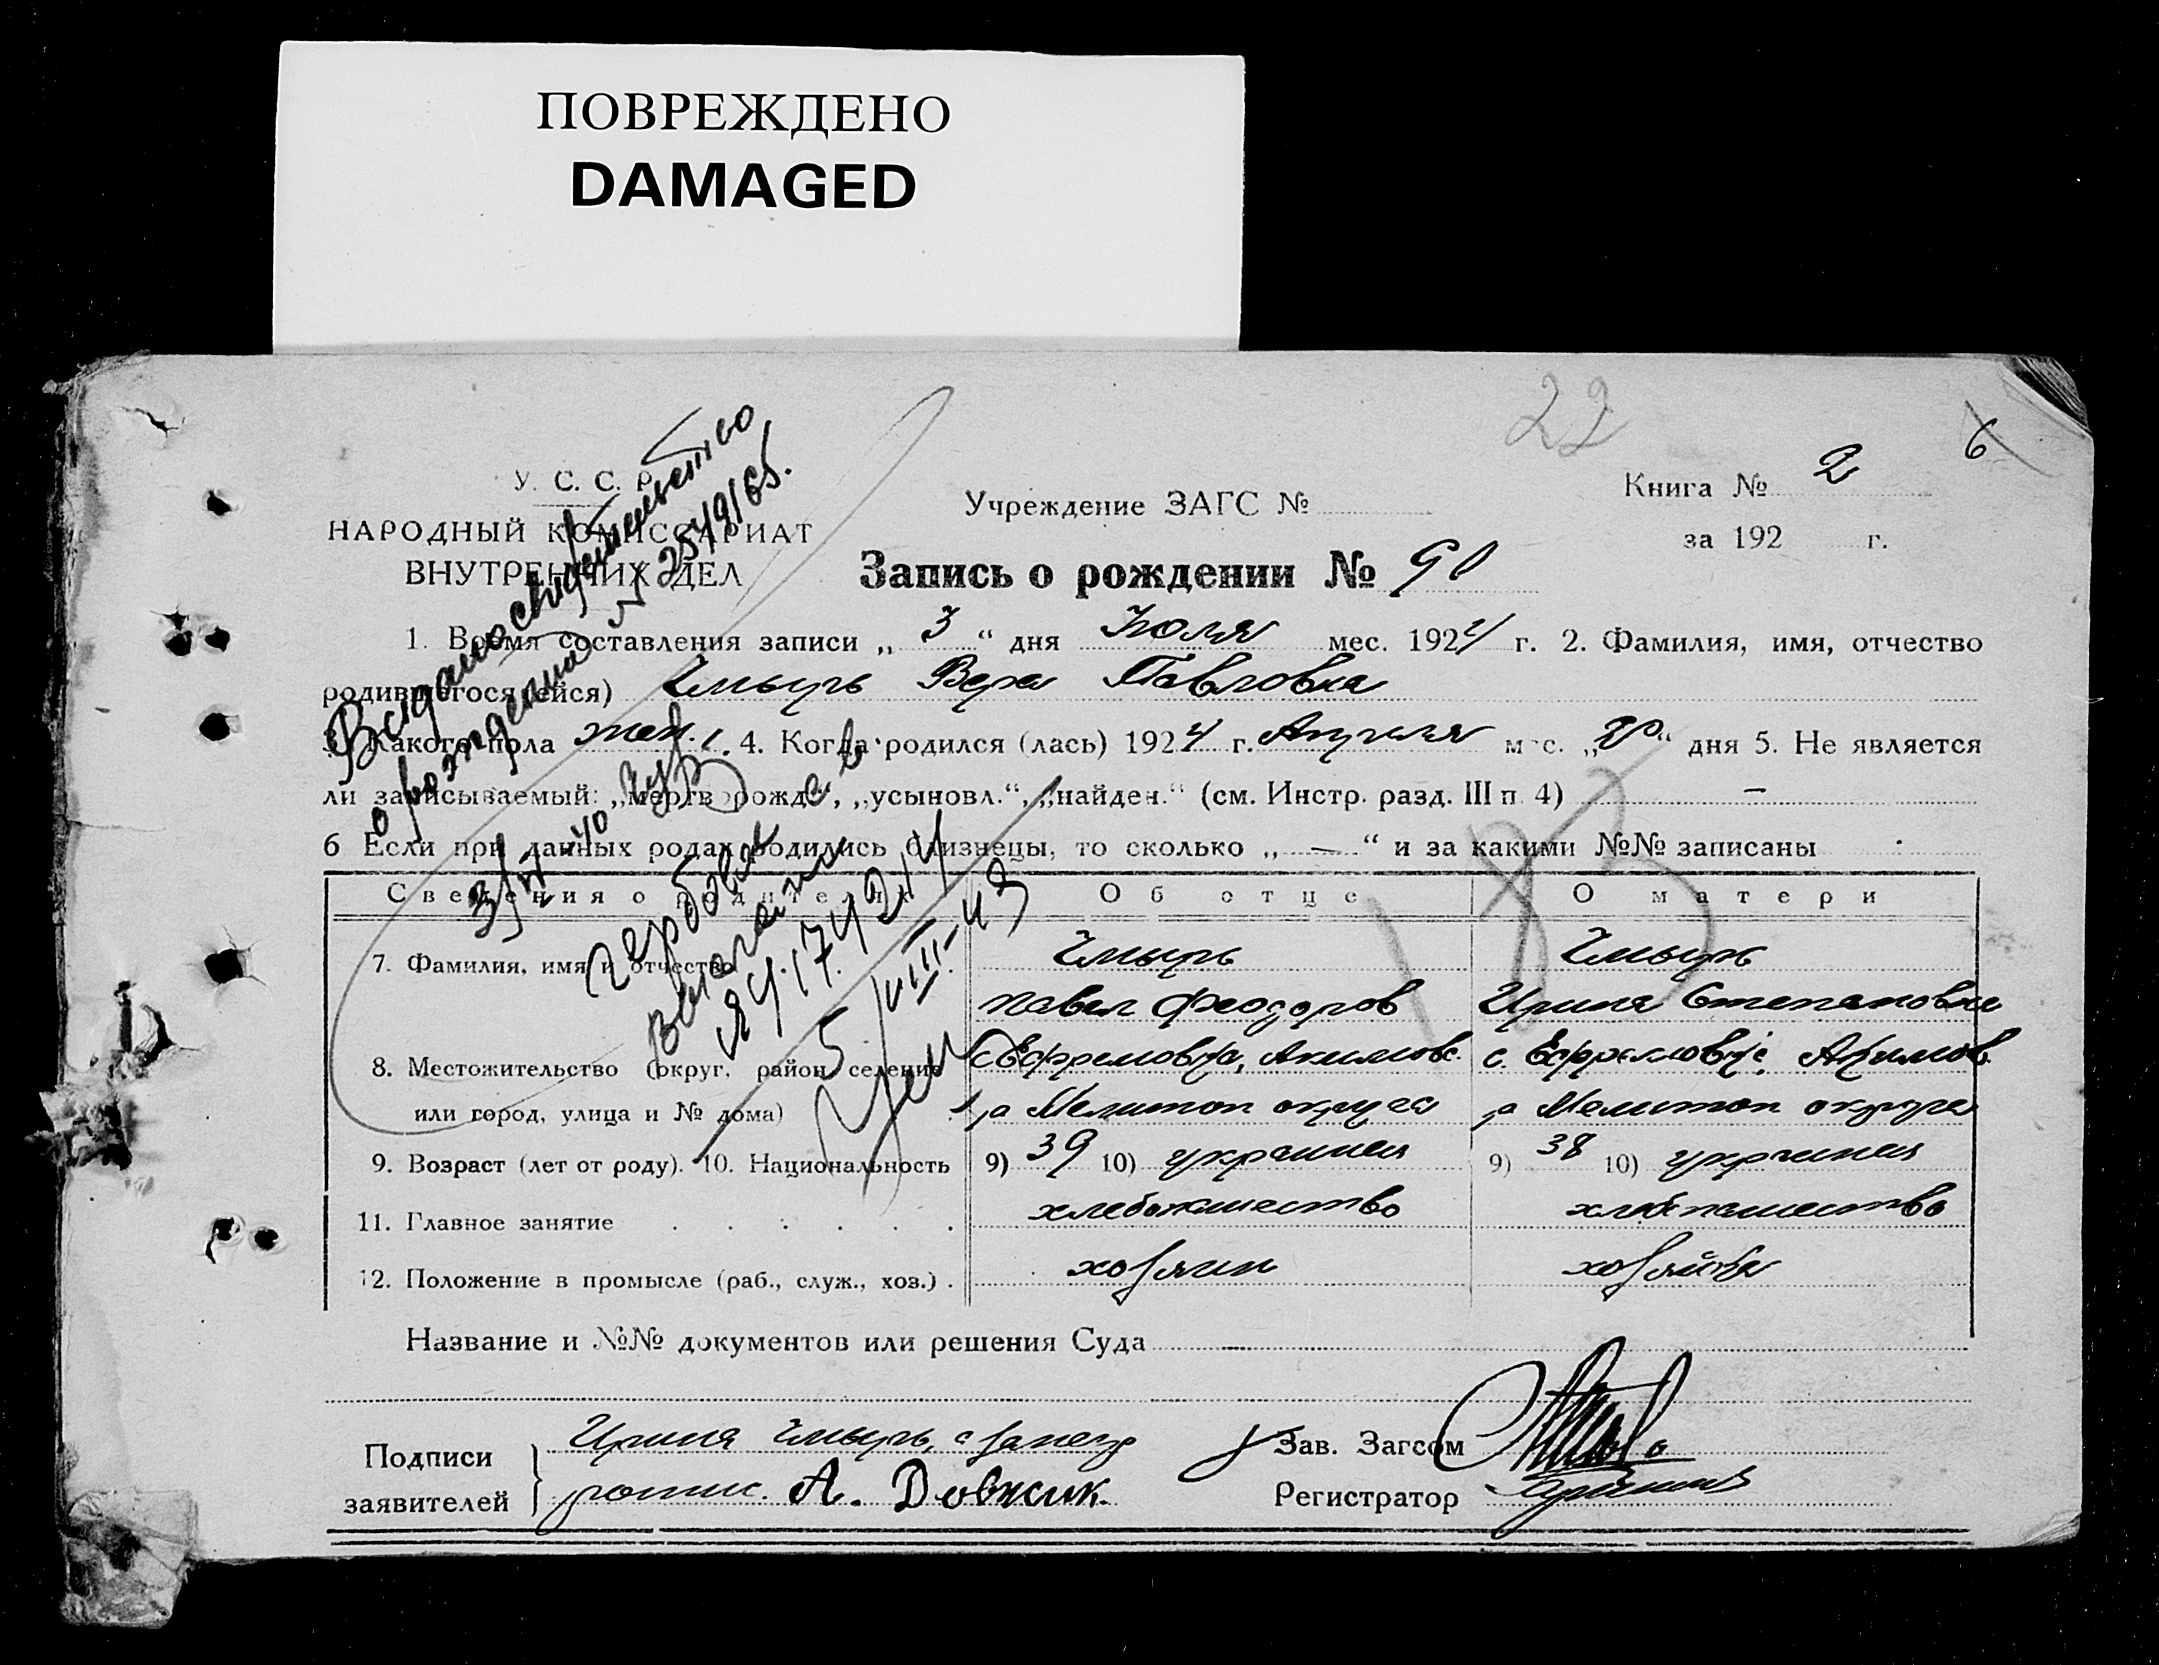 ПОВРЕЖДЕНО
DAMAGED
22
6
У. С. С. Р.
НАРОДНЫЙ КОМИССАРИАТ
ВНУТРЕННИХ ДЕЛ
Учреждение ЗАГС №
Книга № 2
за 192 г.
Запись о рождении № 90
1. Время составления записи „ 3 “ дня Июля мес. 1924 г. 2. Фамилия, имя, отчество
родившегося (ейся) Чмырь Вера Павловна
3. Какого пола жен. 4. Когда родился (лась) 1924 г. Апреля мес. „ “ дня 5. Не является
ли записываемый: „мертворожд.“, „усыновл.“, „найден.“ (см. Инстр. разд. III п. 4) —
6 Если при данных родах родились близнецы, то сколько „ — “ и за какими №№ записаны
Сведения о родителях
Об отце
О матери
7. Фамилия, имя и отчество
Чмырь
Павел Феодоров
Чмырь
Ирина Степановна
8. Местожительство (округ, район, селение
или город, улица и № дома)
с. Ефремовка, Акимовс.
р-а Мелитоп округа
с. Ефремовке, Акимов.
р-а Мелитоп округа
9. Возраст (лет от роду). 10. Национальность
9) 39 10) украинец
9) 38 10) украинка
11. Главное занятие
хлебопашество
хлебопашество
12. Положение в промысле (раб., служ., хоз.)
хозяин
хозяйка
Название и №№ документов или решения Суда —
Подписи
заявителей
Ирина Чмырь, а за неегр
роспис. А. Довжик.
Зав. Загсом
Регистратор
Выдано свидетельство
о рождении № 2549165.
183
5/VIII-43